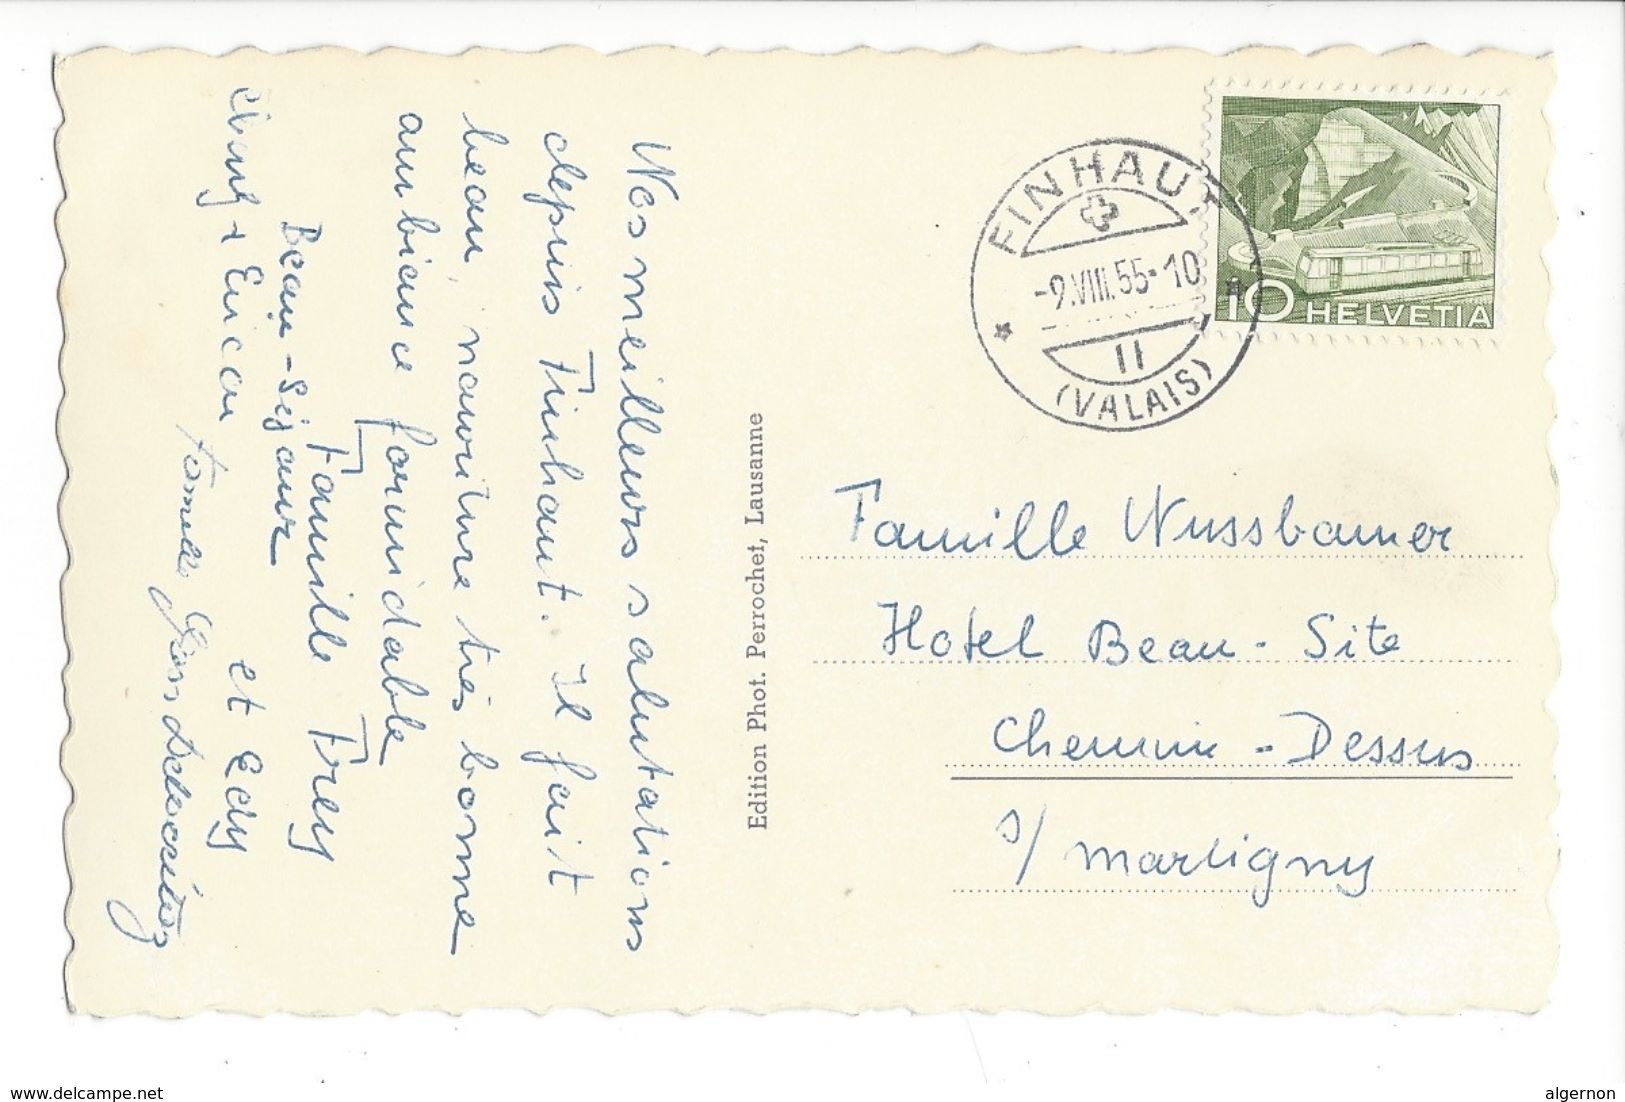 Nos meilleurs salutations
depuis Finhaut. Il fait
beau, nouriture très bonne
ambiance formidable
Famille Frey
Beau-Séjour
et Edy
Famille
Edition Phot. Perrochet, Lausanne
FINHAUT
-9.VIII.55-10
11
(VALAIS)
10 HELVETIA
Famille Nussbaumer
Hotel Beau-Site
Chemin-Dessus
s/ Martigny
delcampe.net
algernon